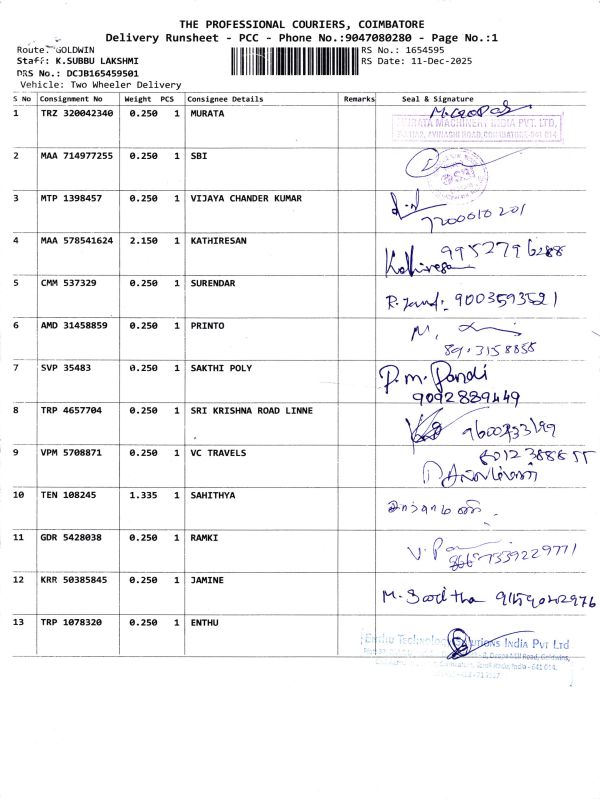 THE PROFESSIONAL COURIERS, COIMBATORE
Delivery Runsheet - PCC - Phone No.:9047080280 - Page No.:1
Route: GOLDWIN RS No.: 1654595
Staff: K.SUBBU LAKSHMI RS Date: 11-Dec-2025
DRS No.: DCJB165459501
Vehicle: Two Wheeler Delivery
S No Consignment No Weight PCS Consignee Details Remarks Seal & Signature
1 TRZ 320042340 0.250 1 MURATA
MURATA MACHINERY INDIA PVT. LTD,
AVINASHI ROAD, COIMBATORE-641 014
2 MAA 714977255 0.250 1 SBI
3 MTP 1398457 0.250 1 VIJAYA CHANDER KUMAR
7200010201
4 MAA 578541624 2.150 1 KATHIRESAN Kathiresan 9952796288
5 CMM 537329 0.250 1 SURENDAR
9003593521
6 AMD 31458859 0.250 1 PRINTO M.
8903158855
7 SVP 35483 0.250 1 SAKTHI POLY P.M. Pandi
9092889449
8 TRP 4657704 0.250 1 SRI KRISHNA ROAD LINNE
9 VPM 5708871 0.250 1 VC TRAVELS 6012388855
10 TEN 108245 1.335 1 SAHITHYA
11 GDR 5428038 0.250 1 RAMKI
7339229771
12 KRR 50385845 0.250 1 JAMINE
13 TRP 1078320 0.250 1 ENTHU
Enthu Technology Solutions India Pvt Ltd
Road, Goldwins,
Coimbatore, Tamil Nadu, India - 641 014.